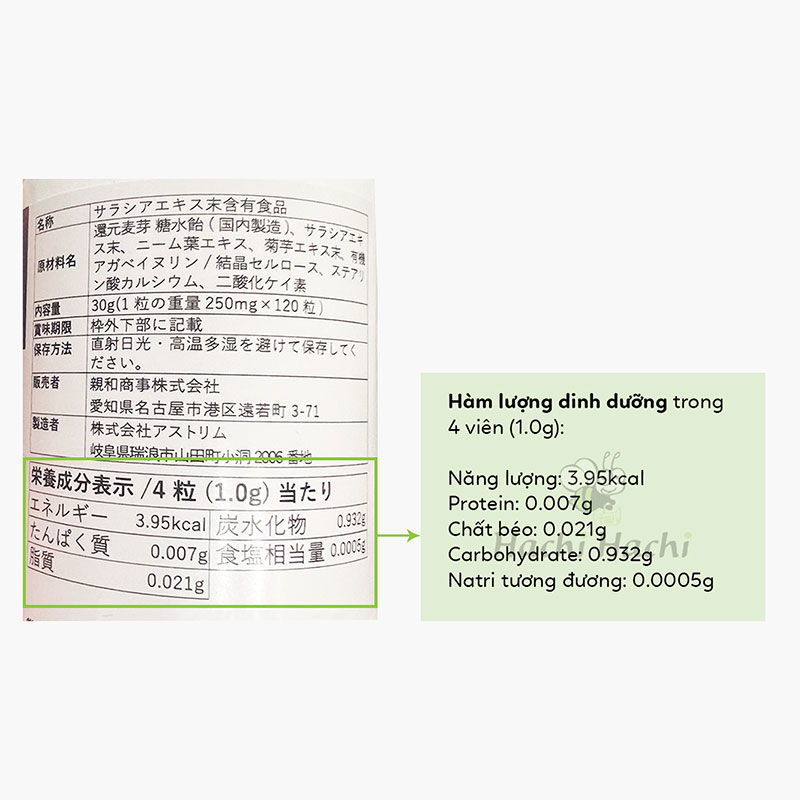 名称 サラシアエキス末含有食品
原材料名 還元麦芽糖水飴(国内製造)、サラシアエキ
ス末、ニーム葉エキス、菊芋エキス末、有機
アガベイヌリン/結晶セルロース、ステアリ
ン酸カルシウム、二酸化ケイ素
内容量 30g(1粒の重量250mg×120粒)
賞味期限 枠外下部に記載
保存方法 直射日光・高温多湿を避けて保存してく
ださい。
販売者 親和商事株式会社
愛知県名古屋市港区遠若町3-71
製造者 株式会社アストリム
岐阜県瑞浪市山田町小洞2006番地
栄養成分表示/4粒(1.0g)当たり
エネルギー 3.95kcal 炭水化物 0.932g
たんぱく質 0.007g 食塩相当量 0.0005g
脂質 0.021g
Hàm lượng dinh dưỡng trong
4 viên (1.0g):
Năng lượng: 3.95kcal
Protein: 0.007g
Chất béo: 0,021g
Carbohydrate: 0.932g
Natri tương đương: 0.0005g
Hachi Hachi